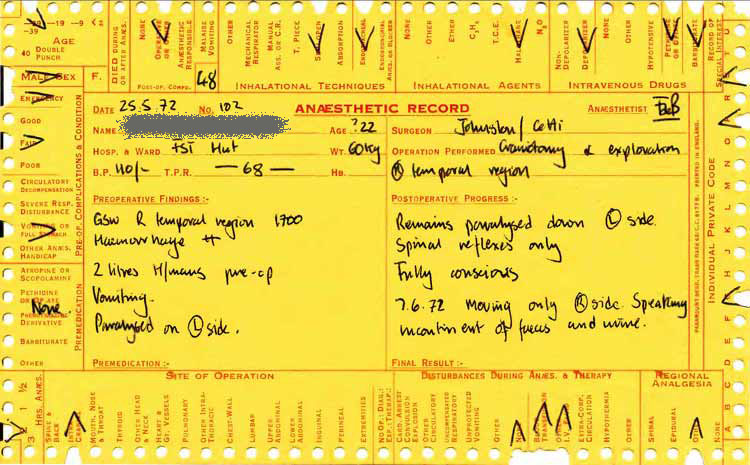 -29 -19 -9
-39
AGE
40 DOUBLE
PUNCH
DIED DURING
OR AFTER ANÆS.
NONE
OPERATIVE
ANÆSTHETIC
RESPONSIBLE
MALAISE
VOMITING
OTHER
POST-OP. COMPS.
48
MECHANICAL
RESPIRATOR
MANUAL
ASS. OR C.R.
T. PIECE
ABSORPTION
INHALATIONAL TECHNIQUES
OTHER
ETHER
C₃H₆
T.C.E.
HALOTHANE
N₂O
INHALATIONAL AGENTS
NON-
DEPOLARIZER
DEPOLARIZER
OTHER
HYPOTENSIVE
BARBITURATE
INTRAVENOUS DRUGS
RECORD OF
SPECIAL INTEREST
MALE SEX F.
EMERGENCY
GOOD
FAIR
POOR
CIRCULATORY
DECOMPENSATION
SEVERE RESP.
DISTURBANCE
VOMITING OR
FULL STOMACH
OTHER ANÆS.
HANDICAP
PRE-OP. COMPLICATIONS & CONDITION
ATROPINE OR
SCOPOLAMINE
PETHIDINE
OR OPIATE
None
PHENOTHIAZINE
DERIVATIVE
BARBITURATE
OTHER
DATE 25.5.72 No. 102
ANÆSTHETIC RECORD
ANÆSTHETIST
NAME
AGE ?22
SURGEON Johnston/
HOSP. & WARD FST Hut
WT. 60kg
OPERATION PERFORMED Craniotomy & exploration
B.P. 110/- T.P.R. — 68 — HB.
(R) temporal region
PREOPERATIVE FINDINGS :-
GSW R temporal region 1700
Haemorrhage ++
2 litres H/manns pre-op
Vomiting.
Paralysed on (L) side.
PREMEDICATION :-
POSTOPERATIVE PROGRESS :-
Remains paralysed down (L) side.
Spinal reflexes only
Fully conscious
7.6.72 Moving only (R) side. Speaking
incontinent of faeces and urine.
FINAL RESULT :-
PRINTED IN ENGLAND.
INDIVIDUAL PRIVATE CODE
HRS. ANÆS.
3 2 1 ½
SITE OF OPERATION
SPINE &
BACK
MOUTH, NOSE
& THROAT
THYROID
OTHER HEAD
& NECK
HEART
GT. VESSELS
PULMONARY
OTHER INTRA-
THORACIC
CHEST-WALL
LUMBAR
UPPER
ABDOMINAL
LOWER
ABDOMINAL
INGUINAL
PERINEAL
EXTREMITIES
NO OP. DIAG.:
EXP.:THERAP.:
DISTURBANCES DURING ANÆS. & THERAPY
CARD. ARREST
CONVULSION
EXPLOSION
OTHER
CIRCULATORY
UNCOMPENSATED
RESPIRATORY
UNPROTECTED
VOMITING
OTHER
EXTRA-CORP.
CIRCULATION
HYPOTHERMIA
OTHER
REGIONAL
ANALGESIA
SPINAL
EPIDURAL
NONE
A B C D E F G H I J K L M N O